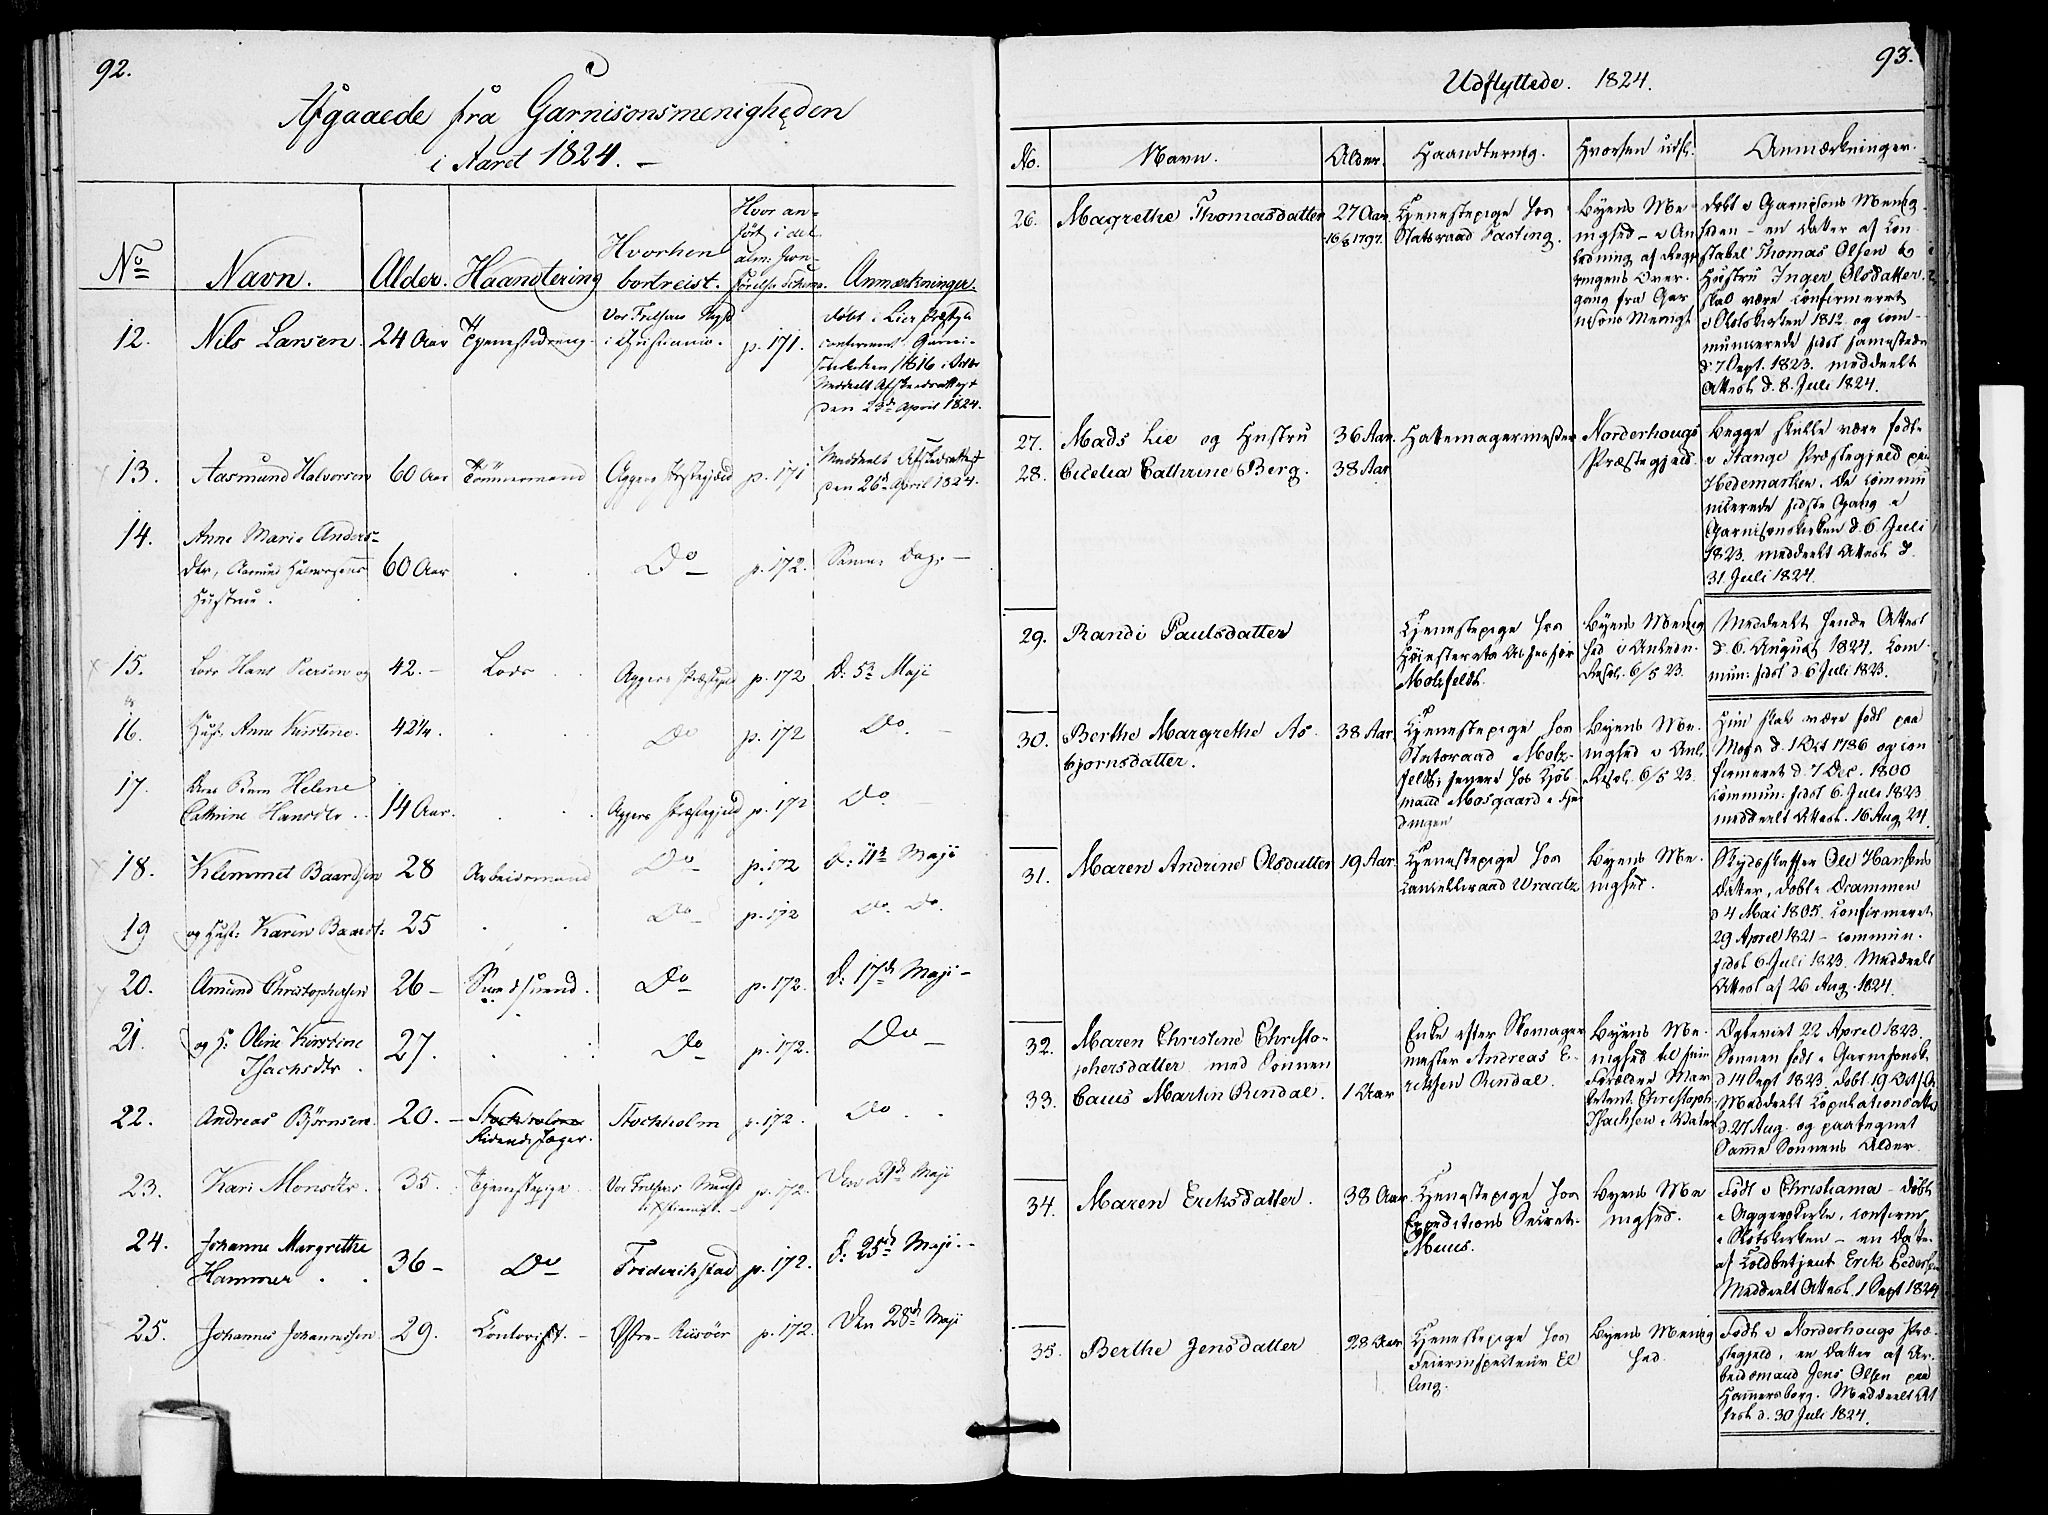 92.
Afgaaede fra Garnisonsmenigheden
i Aaret 1824. —
No
Navn.
Alder.
Haandtering
Hvorhen
bortreist.
Hvor an-
ført i det
alm: Jevn-
førelse Schema.
Anmærkninger.
12. Nils Larsen. 24 Aar Tjenestedreng. Vor Frelsers
i Christiania. p. 171.
døbt i Lier Præstgl
confirmert i Garni-
sonskirken 1816 i Octbr
Meddeelt Afskedsattest
den 23de April 1824.
13. Aasmund Halvorsen 60 Aar Tömmermand Aggers Præstegjæld p. 171
Meddeelt Afskedsattest
den 26de April 1824.
14. Anne Marie Anders-
dtr, Aasmund Halvorsens
Hustrue.
60 Aar Do p. 172. Samme Dag. —
15. Lods Hans Peersen og 42. — Lods Aggers Præstegjæld p. 172 D: 5te Maji
16. Hust. Anne Kirstine. 42 1/4. Do p. 172 Do. —
17. Deres Barn Helene
Cathrine Hansdtr. 14 Aar. Aggers Præstegjeld p. 172 Do. —
18. Klemmet Baardsen 28 Arbeidsmand Do p. 172 D: 11te Maji
19 og Hust: Karen Baardt: 25 Do p. 172 Do. Do.
20. Amund Christophersen 26 — Svendsvend. Do p. 172. D: 17de Maji —
21. og H: Oline Kirstine
Isachsdtr. 27. Do p. 172. Do
22. Andreas Björnsen. 20. — Stockholm
Ridende Jæger. Stockholm p. 172. Do.
23. Kari Monsdtr. 35. Tjenestepige Vor Frelsers Menigh
i Christiania. — p. 172. Den 21de Maji
24. Johanne Margrethe
Hammer 36 — Do Friderikstad p. 172. D: 25de Maji. —
25. Johannes Johannessen 29. Contorist. — Østre-Riisöer p. 172. Den 28de Maji
93.
Udflyttede. 1824.
No. Navn. Alder. Haandtering. Hvorhen udfl. Anmærkninger.
26. Magrethe Thomasdatter 27 Aar.
16/8 1797.
Tjenestepige hos
Statsraad Fasting.
Byens Me-
nighed — i An-
ledning af Regje-
ringens Over-
gang fra Gar-
nisons Menigh
Døbt i Garnisons Menig-
heden — en Datter af Con-
stabel Thomas Olsen og
Hustru Inger Olsdatter.
skal være confirmeret
i Slotskirken 1812 og com-
municerede sidst sammesteds
d. 7 Sept. 1823. meddeelt
Attest d. 8. Juli 1824.
27. Mads Lie og Hustru 36 Aar. Hattemagermester Norderhougs
28. Cicelia Cathrine Berg. 38 Aar Præstegjeld.
Begge skulle være fødte
i Stange Præstegjeld paa
Hedemarken. De commu
nicerede sidste Gang i
Garnisonskirken d. 6 Juli
1823 meddeelt Attest d.
31. Juli 1824.
29. Randi Paulsdatter
Tjenestepige hos
Høiesterets Assessor
Motzfeldt.
Byens Menig
hed i Anledn.
Resol. 6/5 23.
Meddeelt hende Attest
d. 6. August 1824. Com-
mun: sidst d 6 Juli 1823.
30. Berthe Margrethe As-
bjornsdatter. 38 Aar.
Tjenestepige hos
Statsraad Motz-
feldt, senere hos Kjøb
mand Mosgaard i Fje-
dingen
Byens Me-
nighed i Anl.
Resol. 6/5 23.
Hun skal være født paa
Moss d. 1 Oct 1786 og con
firmeret d. 7 Dec. 1800
commun: sidst 6. Juli 1823
meddeelt Attest. 16 Aug 24.
31. Maren Andrine Olsdatter 19 Aar.
Tjenestepige hos
Cancelliraad Wraatz
Byens Me-
nighed.
Skydsskaffer Ole Hansens
Datter, døbt i Drammen
d 4 Mai 1805. Confirmeret
29 April 1821 — commun.
sidst 6. Juli 1823. Meddeelt
Attest af 26 Aug. 1824.
32. Maren Christine Christo-
phersdatter med Sønnen
33. Caius Martin Rindal. 1 Aar
Enke efter Skomager
mester Andreas E-
richsen Rindal.
Byens Me-
nighed til sine
Forældre Mar
ketent. Christoph
Isachsen i Vater
Egteviet 22 April 1823.
Sønnen født i Garnisonsk.
d 14 Sept 1823. døbt 19 Oct s. A
Meddeelt Copulationsattest
d. 27 Aug. og paategnet
samme Sønnens Alder.
34. Maren Eriksdatter. 38 Aar
Tjenestepige hos
Expeditions Secret.
Muus.
Byens Me
nighed.
Født i Christiania — døbt
i Aggerskirke, confirm
i Slotskirken — en Datter
af Toldbetjent Erik Pedersen
Meddeelt Attest. 1 Sept 1824
35. Berthe Jensdatter 28 Aar
Tjenestepige hos
Feierinspecteur El
ling.
Byens Menig
hed.
Født i Norderhougs Præ-
stegjeld, en Datter af Ar-
beidsmand Jens Olsen paa
Hammersborg. Meddeelt At
test d. 30 Juli 1824.